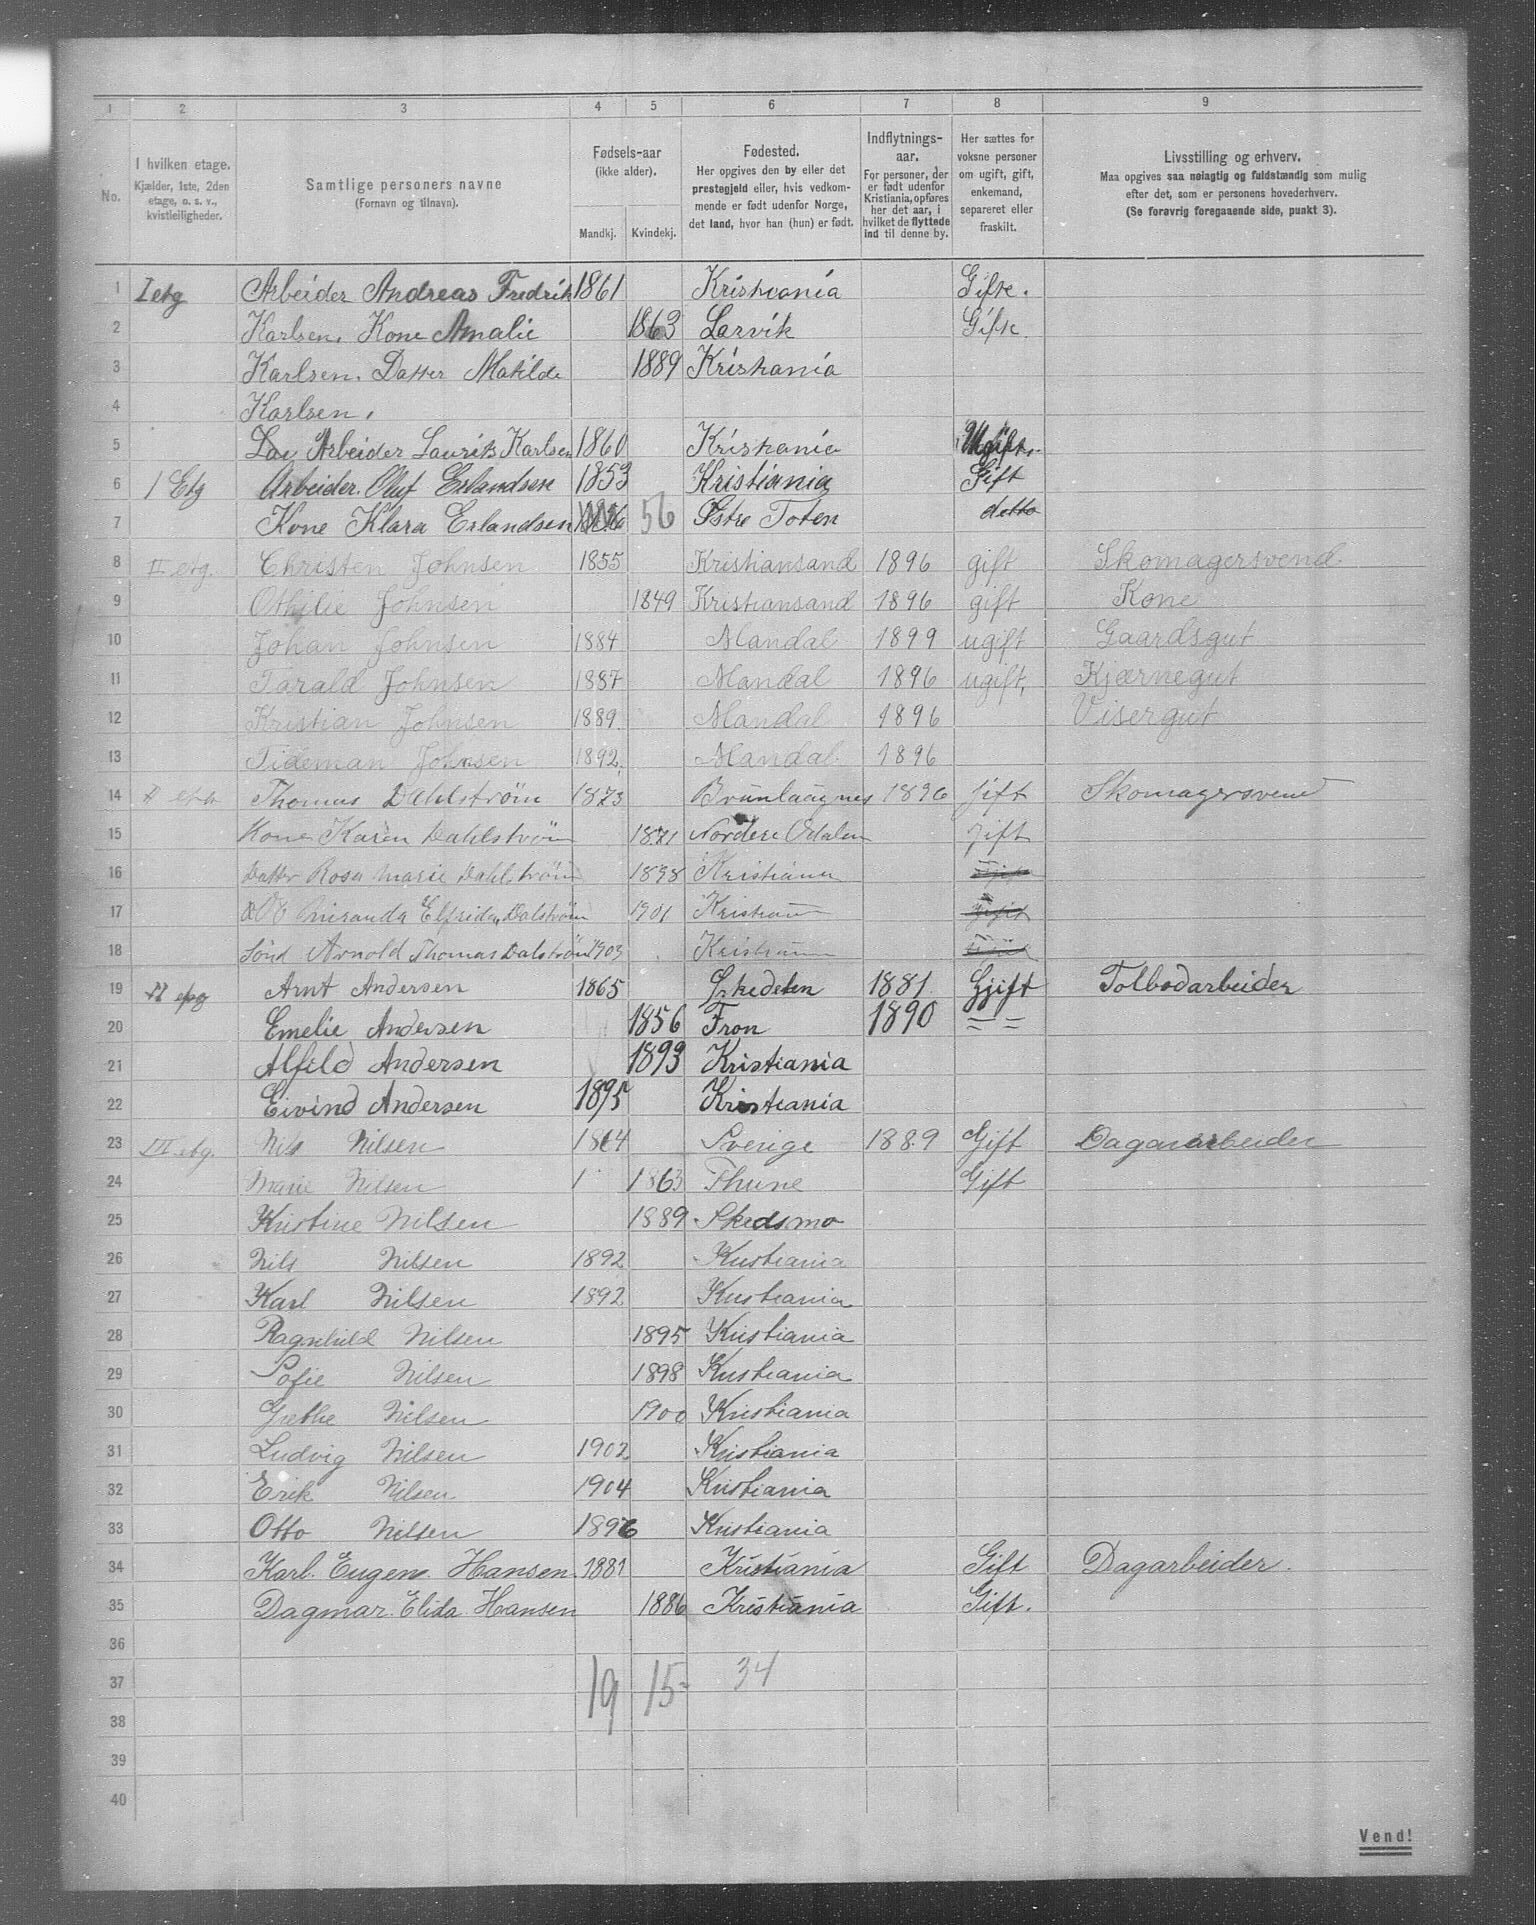 1 2 3 4 5 6 7 8 9
No.
I hvilken etage.
Kjælder, 1ste, 2den
etage, o. s. v.,
kvistleiligheder.
Samtlige personers navne
(Fornavn og tilnavn).
Fødsels-aar
(ikke alder).
Mandkj. Kvindekj.
Fødested.
Her opgives den by eller det
prestegjeld eller, hvis vedkom-
mende er født udenfor Norge,
det land, hvor han (hun) er født.
Indflytnings-
aar.
For personer, der
er født udenfor
Kristiania, opføres
her det aar, i
hvilket de flyttede
ind til denne by.
Her sættes for
voksne personer
om ugift, gift,
enkemand,
separeret eller
fraskilt.
Livsstilling og erhverv.
Maa opgives saa nøiagtig og fuldstændig som mulig
efter det, som er personens hovederhverv.
(Se forøvrig foregaaende side, punkt 3).
1 I etg Arbeider Andreas Fredrik 1861 Kristiania Gift.
2 Karlsen. Kone Amalie 1863 Larvik Gift.
3 Karlsen. Datter Matilde 1889 Kristiania
4 Karlsen.
5 Arbeider Laurits Karlsen 1860 Kristiania Ugift.
6 1 Etg Arbeider Oluf Erlandsen 1853 Kristiania Gift
7 Kone Klara Erlandsen 56 Østre Toten detto
8 II etg. Christen Johnsen 1855 Kristiansand 1896 gift Skomagersvend
9 Othilie Johnsen 1849 Kristiansand 1896 gift Kone
10 Johan Johnsen 1884 Mandal 1899 ugift Gaardsgut
11 Tarald Johnsen 1887 Mandal 1896 ugift, Kjærnegut
12 Kristian Johnsen 1889 Mandal 1896 Visergut
13 Tideman Johnsen 1892 Mandal 1896
14 II Thomas Dahlström 1873 Brunlaugnes 1896 gift Skomagersvend
15 Kone Karen Dahlström 1871 Nordere Odalen gift
16 Datter Rosa Marie Dahlström 1898 Kristiania
17 Miranda Elfrida Dalström 1901 Kristiania
18 Sönd Arnold Thomas Dalström 1903 Kristiania
19 II etg Arnt Andersen 1865 1881 Gjift Tolbodarbeider
20 Emelie Andersen 1856 Fron 1890 = =
21 Alfild Andersen 1893 Kristiania
22 Eivind Andersen 1895 Kristiania
23 III etg. Nils Nilsen 1864 Sverige 1889 Gift Dagararbeider
24 Marie Nilsen 1863 Thune Gift
25 Kristine Nilsen 1889 Skedsmo
26 Nils Nilsen 1892 Kristiania
27 Karl Nilsen 1892 Kristiania
28 Ragnhild Nilsen 1895 Kristiania
29 Sofie Nilsen 1898 Kristiania
30 Grethe Nilsen 1900 Kristiania
31 Ludvig Nilsen 1902 Kristiania
32 Erik Nilsen 1904 Kristiania
33 Otto Nilsen 1896 Kristiania
34 Karl. Eugen. Hansen. 1881 Kristiania Gift Dagarbeider.
35 Dagmar. Elida Hansen 1886 Kristiania Gift.
36
37 19 15 34
38
39
40
Vend!